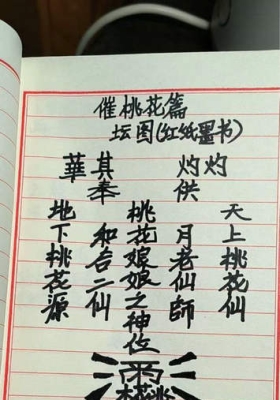 催桃花篇
坛图(红纸墨书)
灼灼其華
供奉
天上桃花仙
月老仙師
桃花娘娘之神位
和合二仙
地下桃花源